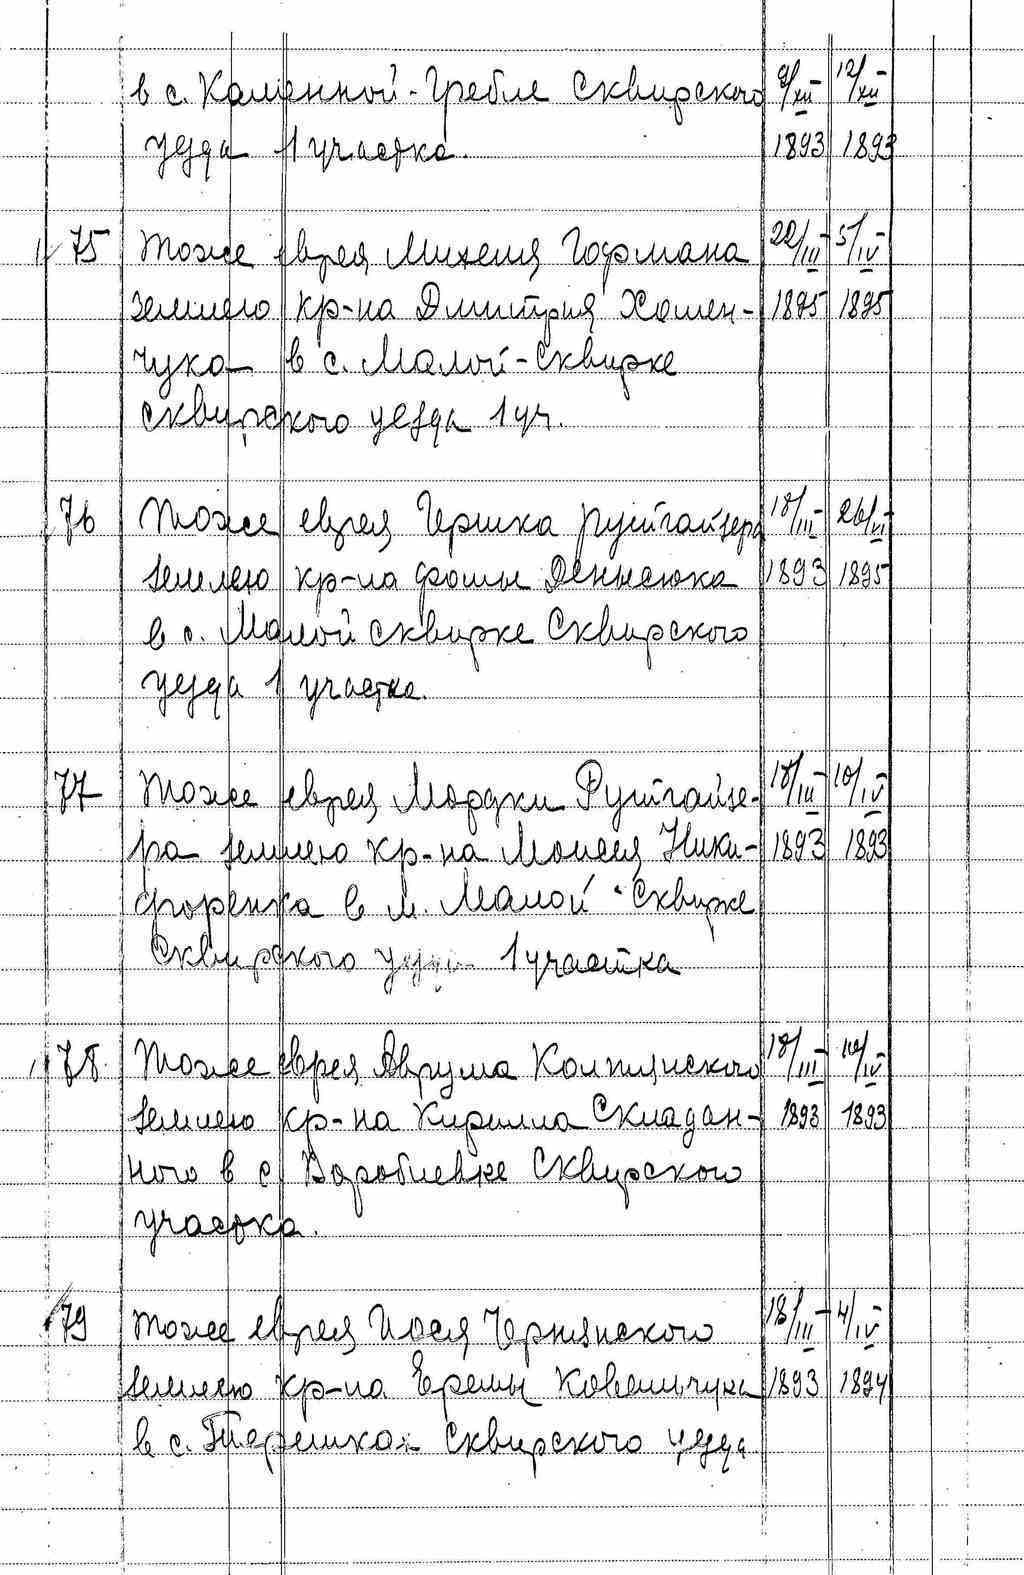 в с. Каменной-Гребле Сквирского 9/XII – 12/XII –
уезда 1 участка. 1893 1893
75 Тоже еврея Михеля Гофмана 22/III – 5/IV –
землею кр-на Дмитрия Хомен- 1895 1895
чука в с. Малой-Сквирке
Сквирского уезда 1 уч.
76 Тоже еврея Гершка Рутгайзера 18/III – 26/VI –
землею кр-на Фомы Денисюка 1893 1895
в с. Малой Сквирке Сквирского
уезда 1 участка.
77 Тоже еврея Мордки Рутгайзе- 18/III – 10/IV –
ра землею кр-на Моисея Ники- 1893 1893
форенка в м. Малой-Сквирке
Сквирского уезда 1 участка
78. Тоже еврея Аврума Колтянского 18/III – 10/IV –
землею кр-на Кирилла Складан- 1893 1893
ного в с Воробиевке Сквирского
участка.
79 Тоже еврея Иося Чернянского 18/III – 4/IV –
землею кр-на Еремы Ковальчука 1893 1894
в с. Терешках Сквирского уезда